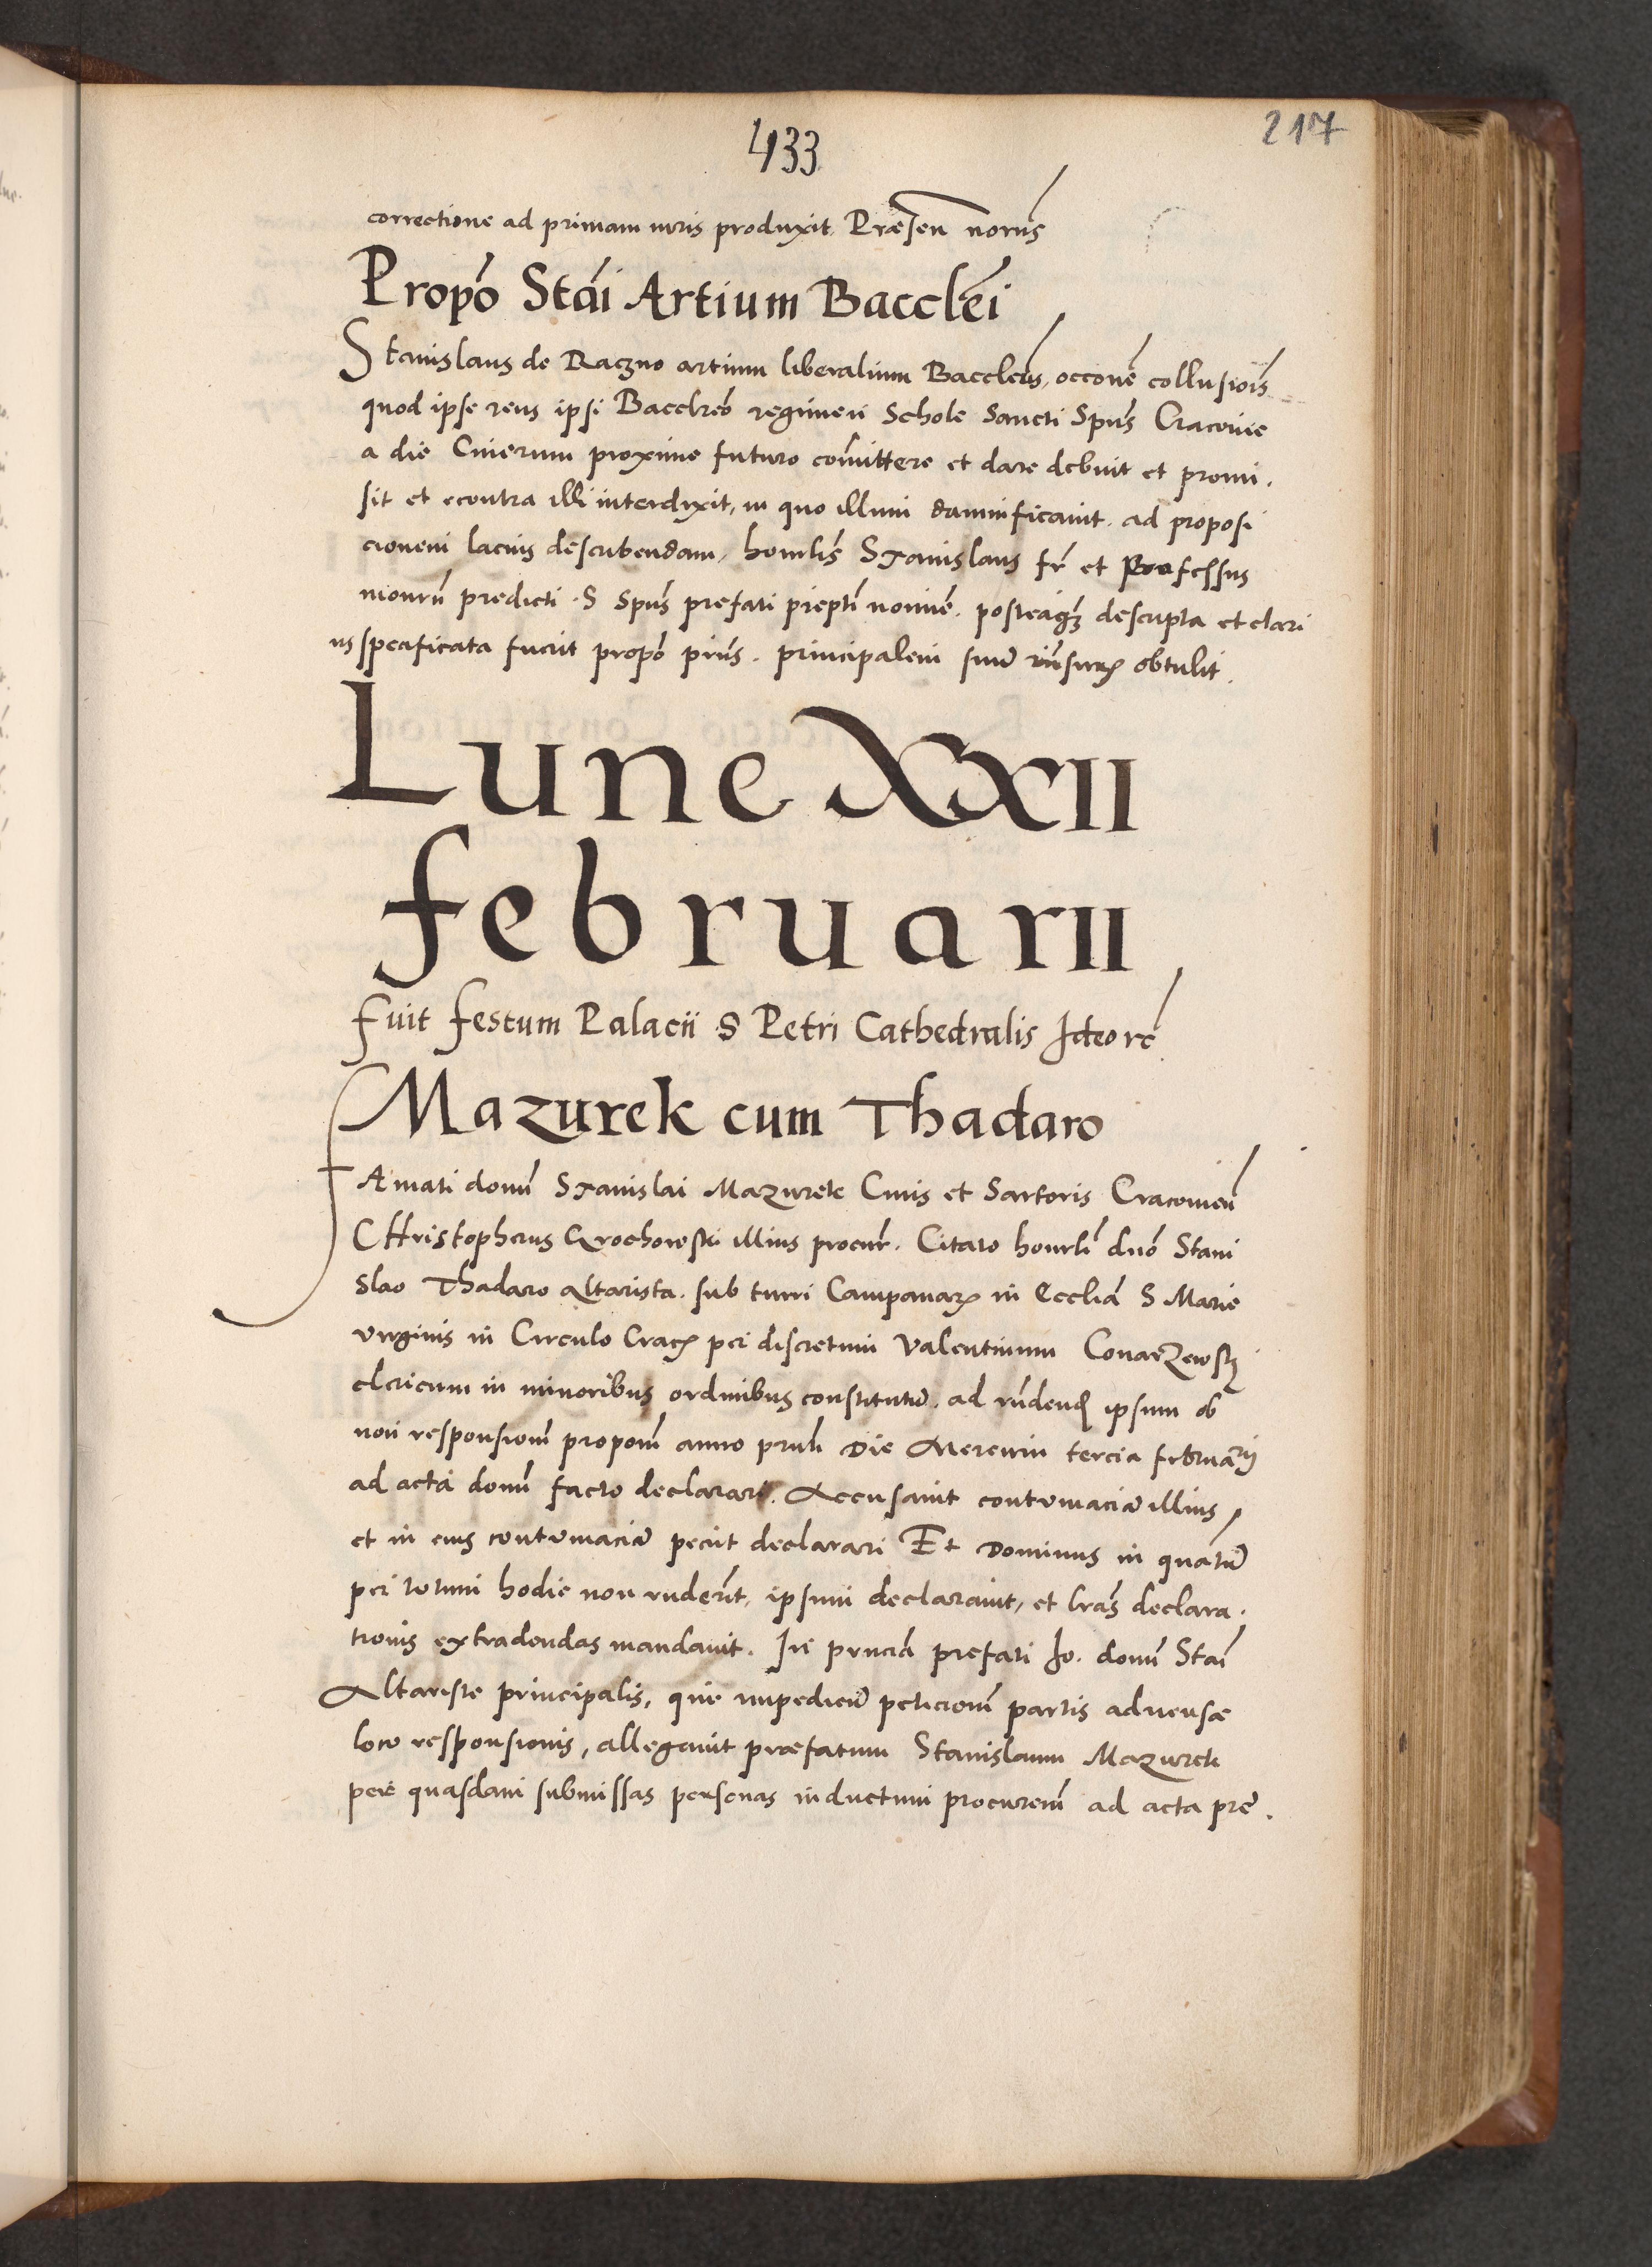 433
217
correctione ad primam iuris produxit. Præsen norns̄
Propō Stāi Artium Bacclēi
Stanislaus de Raczno artium liberalium Bacclēus, occonē collusiōis
quod ipse reus ipsi Bacclreō regimen Schole Sancti Spūs Cracovie
a die Cinerum proxime futuro cōmittere et dare debuit et promi.
sit et econtra illi interdixit, in quo illum damnificavit. ad proposi
cionem lacius describendam, honrlīs Stanislaus fr̄ et Professus
monrii predicti S Spūs prefati p̄reptī nomiē. posteaqz descripta et clari
us specificata fuerit propō priūs. principalem suū rūsurz obtulit.
Lune XXII
februarii
fuit festum Palacii S Petri Cathedralis Ideo re
Mazurek cum Thadaro
Famati domī Stanislai Mazurek Civis et Sartoris Cracovien
CHristopherus Grochowski illius procur̄. Citato honrlī dnō Stani
slao Thadaro altarista. sub turri Campanarz in Eccliā S Marie
virginis in Circulo Cracz per discretum Valentinum Conarzewskj
clericum in minoribus ordinibus constitutū. ad rn̄dend ipsum ob
non responsionē proponī anno prnti Die Mercurii tercia februarij
ad acta domī facto declarari. Accusavit contumaciā illius
et in eius contumaciā peciit declarari Et Dominus in quatū
per totum hodie non rnderit, ipsum declaravit, et lrās declara.
tionis extradendas mandavit. In prnciā prefati Io. domī Stāi
Altariste principalis, qui impediēū peticionī partis adversæ
loco responsionis, allegavit præfatum Stanislaum Mazurek
per quasdam submissas personas inductum procurenī ad acta pre.